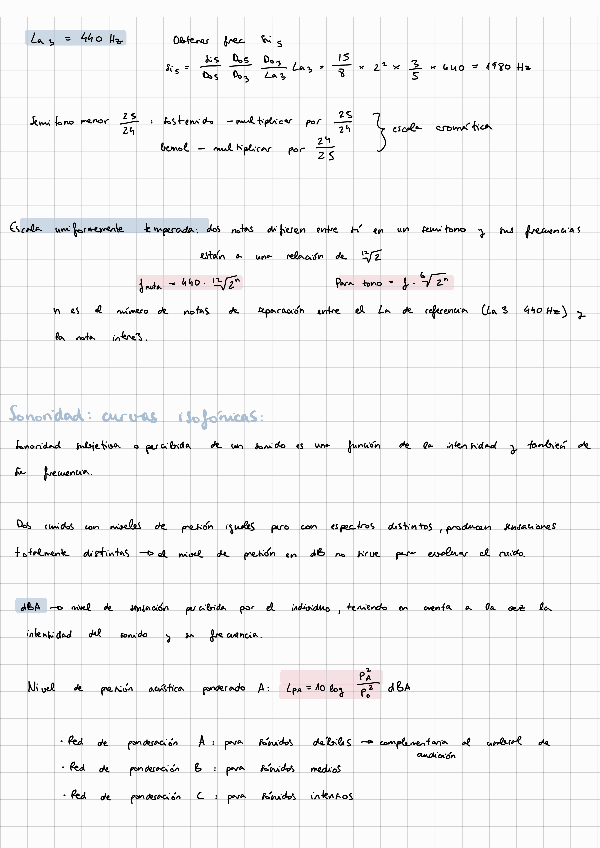 La₃ = 440 Hz   Obtener frec Si₅
Si₅ = Si₅/Do₅ Do₅/Do₃ Do₃/La₃ La₃ = 15/8 × 2² × 3/5 × 440 = 1980 Hz
Semitono menor 25/24 : sostenido – multiplicar por 25/24 } escala cromática
bemol – multiplicar por 24/25
Escala uniformemente temperada: dos notas difieren entre sí en un semitono y sus frecuencias
están a una relación de ¹²√2
f nota = 440 · ¹²√2ⁿ   Para tono = f · ⁶√2ⁿ
n es el número de notas de separación entre el La de referencia (La 3 440 Hz) y
la nota interés.
Sonoridad: curvas isofónicas:
Sonoridad subjetiva o percibida de un sonido es una función de la intensidad y también de
su frecuencia.
Dos ruidos con niveles de presión iguales pero con espectros distintos, producen sensaciones
totalmente distintas → el nivel de presión en dB no sirve para evaluar el ruido.
dBA → nivel de sensación percibida por el individuo, teniendo en cuenta a la vez la
intensidad del sonido y su frecuencia.
Nivel de presión acústica ponderado A: L_PA = 10 log P_A²/P₀² dBA
· Red de ponderación A : para sonidos débiles → complementaria al umbral de
audición
· Red de ponderación B : para sonidos medios
· Red de ponderación C : para sonidos intensos